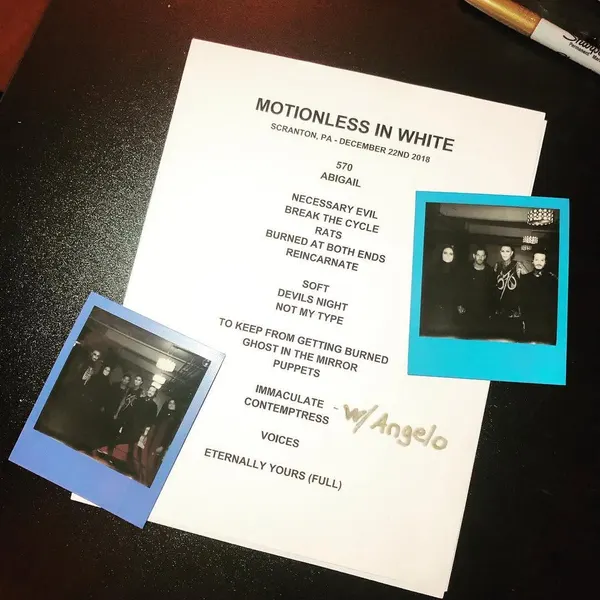 Sharpie
MOTIONLESS IN WHITE
SCRANTON, PA - DECEMBER 22ND 2018
570
ABIGAIL
NECESSARY EVIL
BREAK THE CYCLE
RATS
BURNED AT BOTH ENDS
REINCARNATE
SOFT
DEVILS NIGHT
NOT MY TYPE
TO KEEP FROM GETTING BURNED
GHOST IN THE MIRROR
PUPPETS
IMMACULATE
CONTEMPTRESS - w/ Angelo
VOICES
ETERNALLY YOURS (FULL)
570